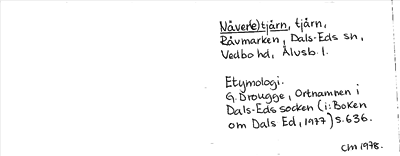 Nåver(e)tjärn, tjärn,
Råvmarken, Dals-Eds sn,
Vedbo hd, Älvsb. l.
Etymologi.
G. Drougge, Ortnamnen i
Dals-Eds socken (i: Boken
om Dals Ed, 1977) s. 636.
CM 1978.